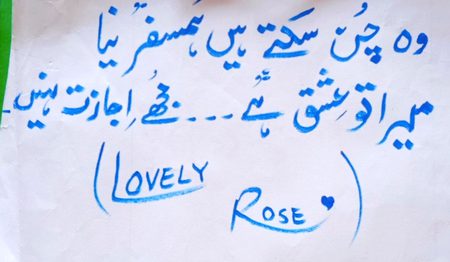 وہ چُن سکتے ہیں ہمسفر نیا
میرا تو عِشق ہے --- مجھے اِجازت نہیں
(LOVELY ROSE)